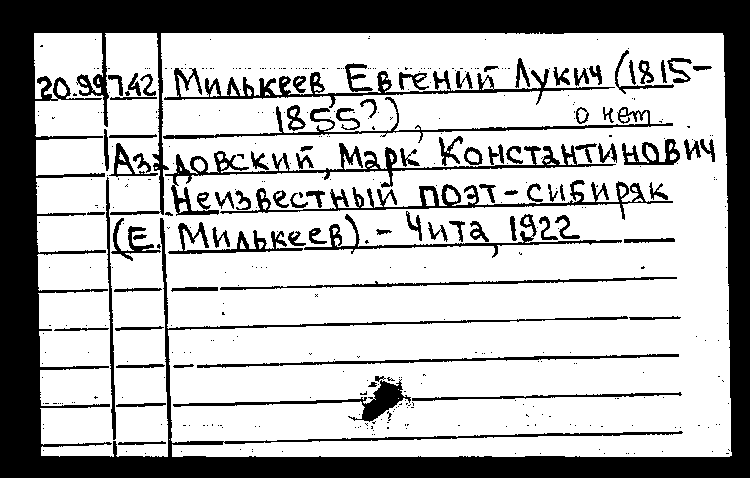 20.997.42 Милькеев, Евгений Лукич (1815-
1855?), о нем
Азадовский, Марк Константинович
Неизвестный поэт-сибиряк
(Е. Милькеев).- Чита, 1922